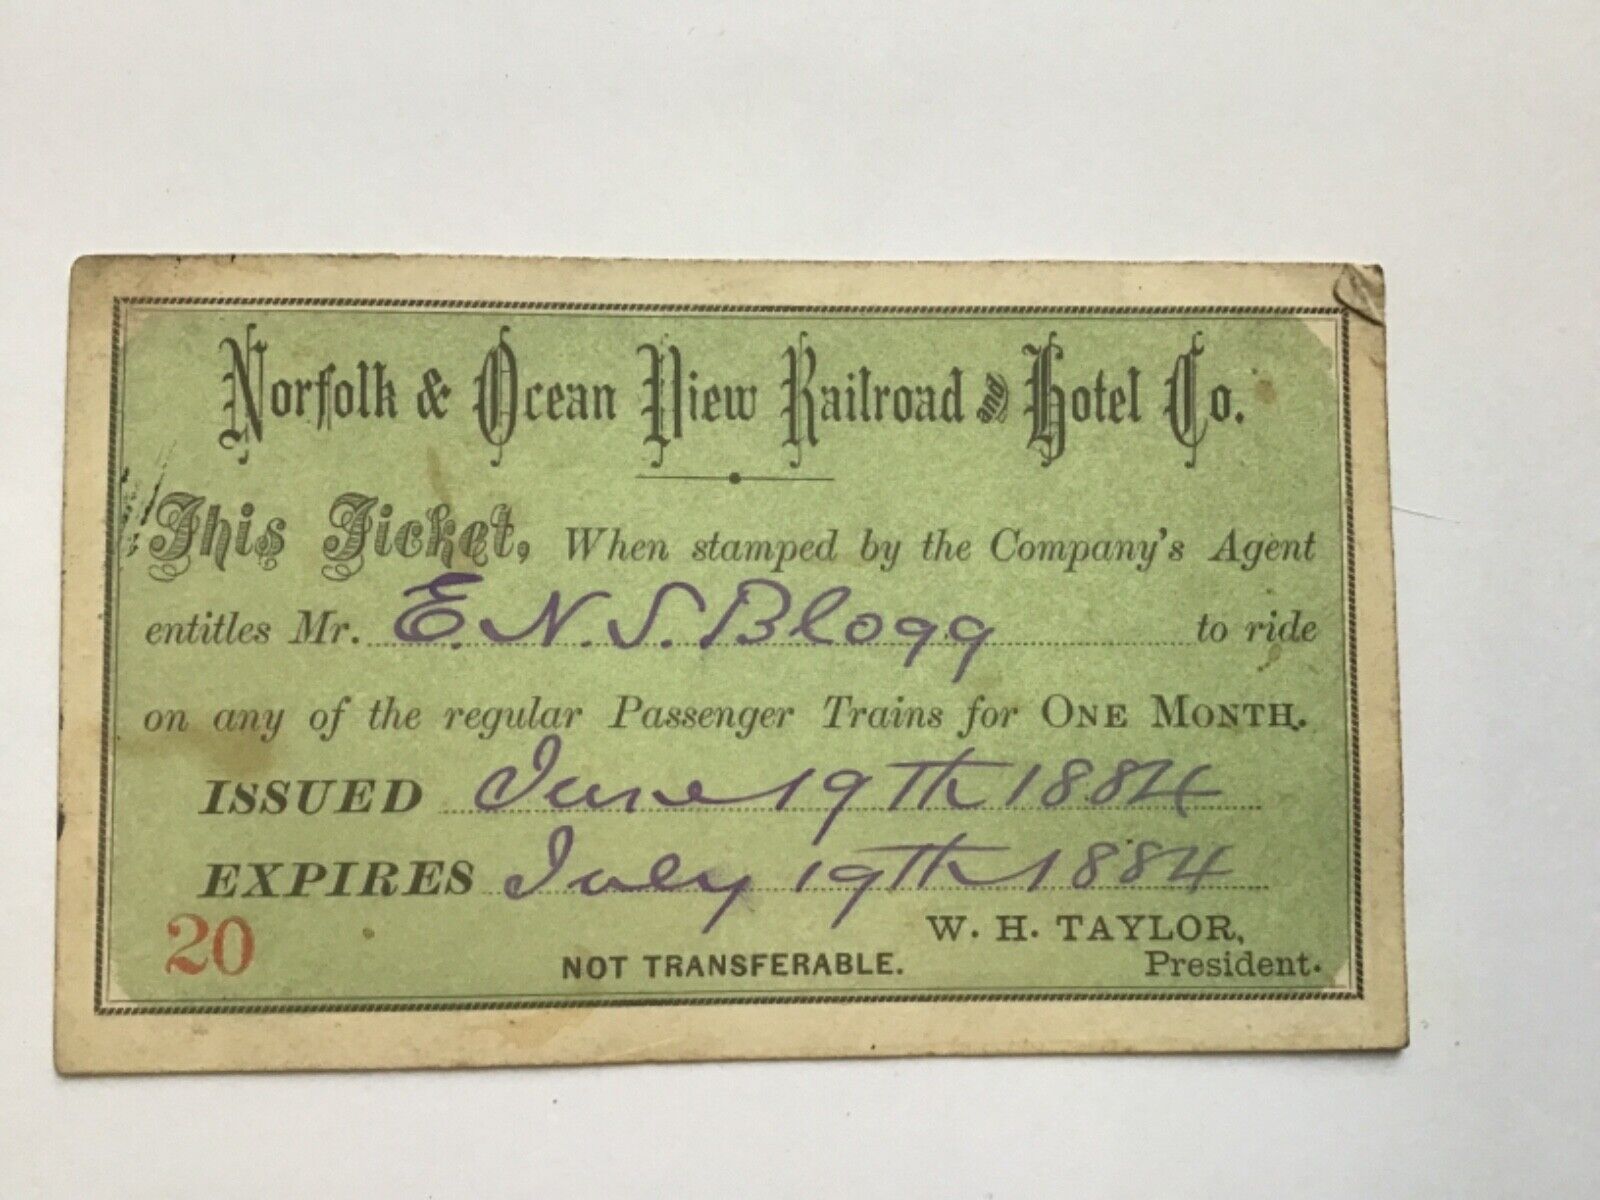 Norfolk & Ocean View Railroad and Hotel Co.
This Ticket, When stamped by the Company's Agent
entitles Mr. E. N. S. Blogg to ride
on any of the regular Passenger Trains for ONE MONTH.
ISSUED June 19th 1884
EXPIRES July 19th 1884
20 NOT TRANSFERABLE. W. H. TAYLOR,
President.